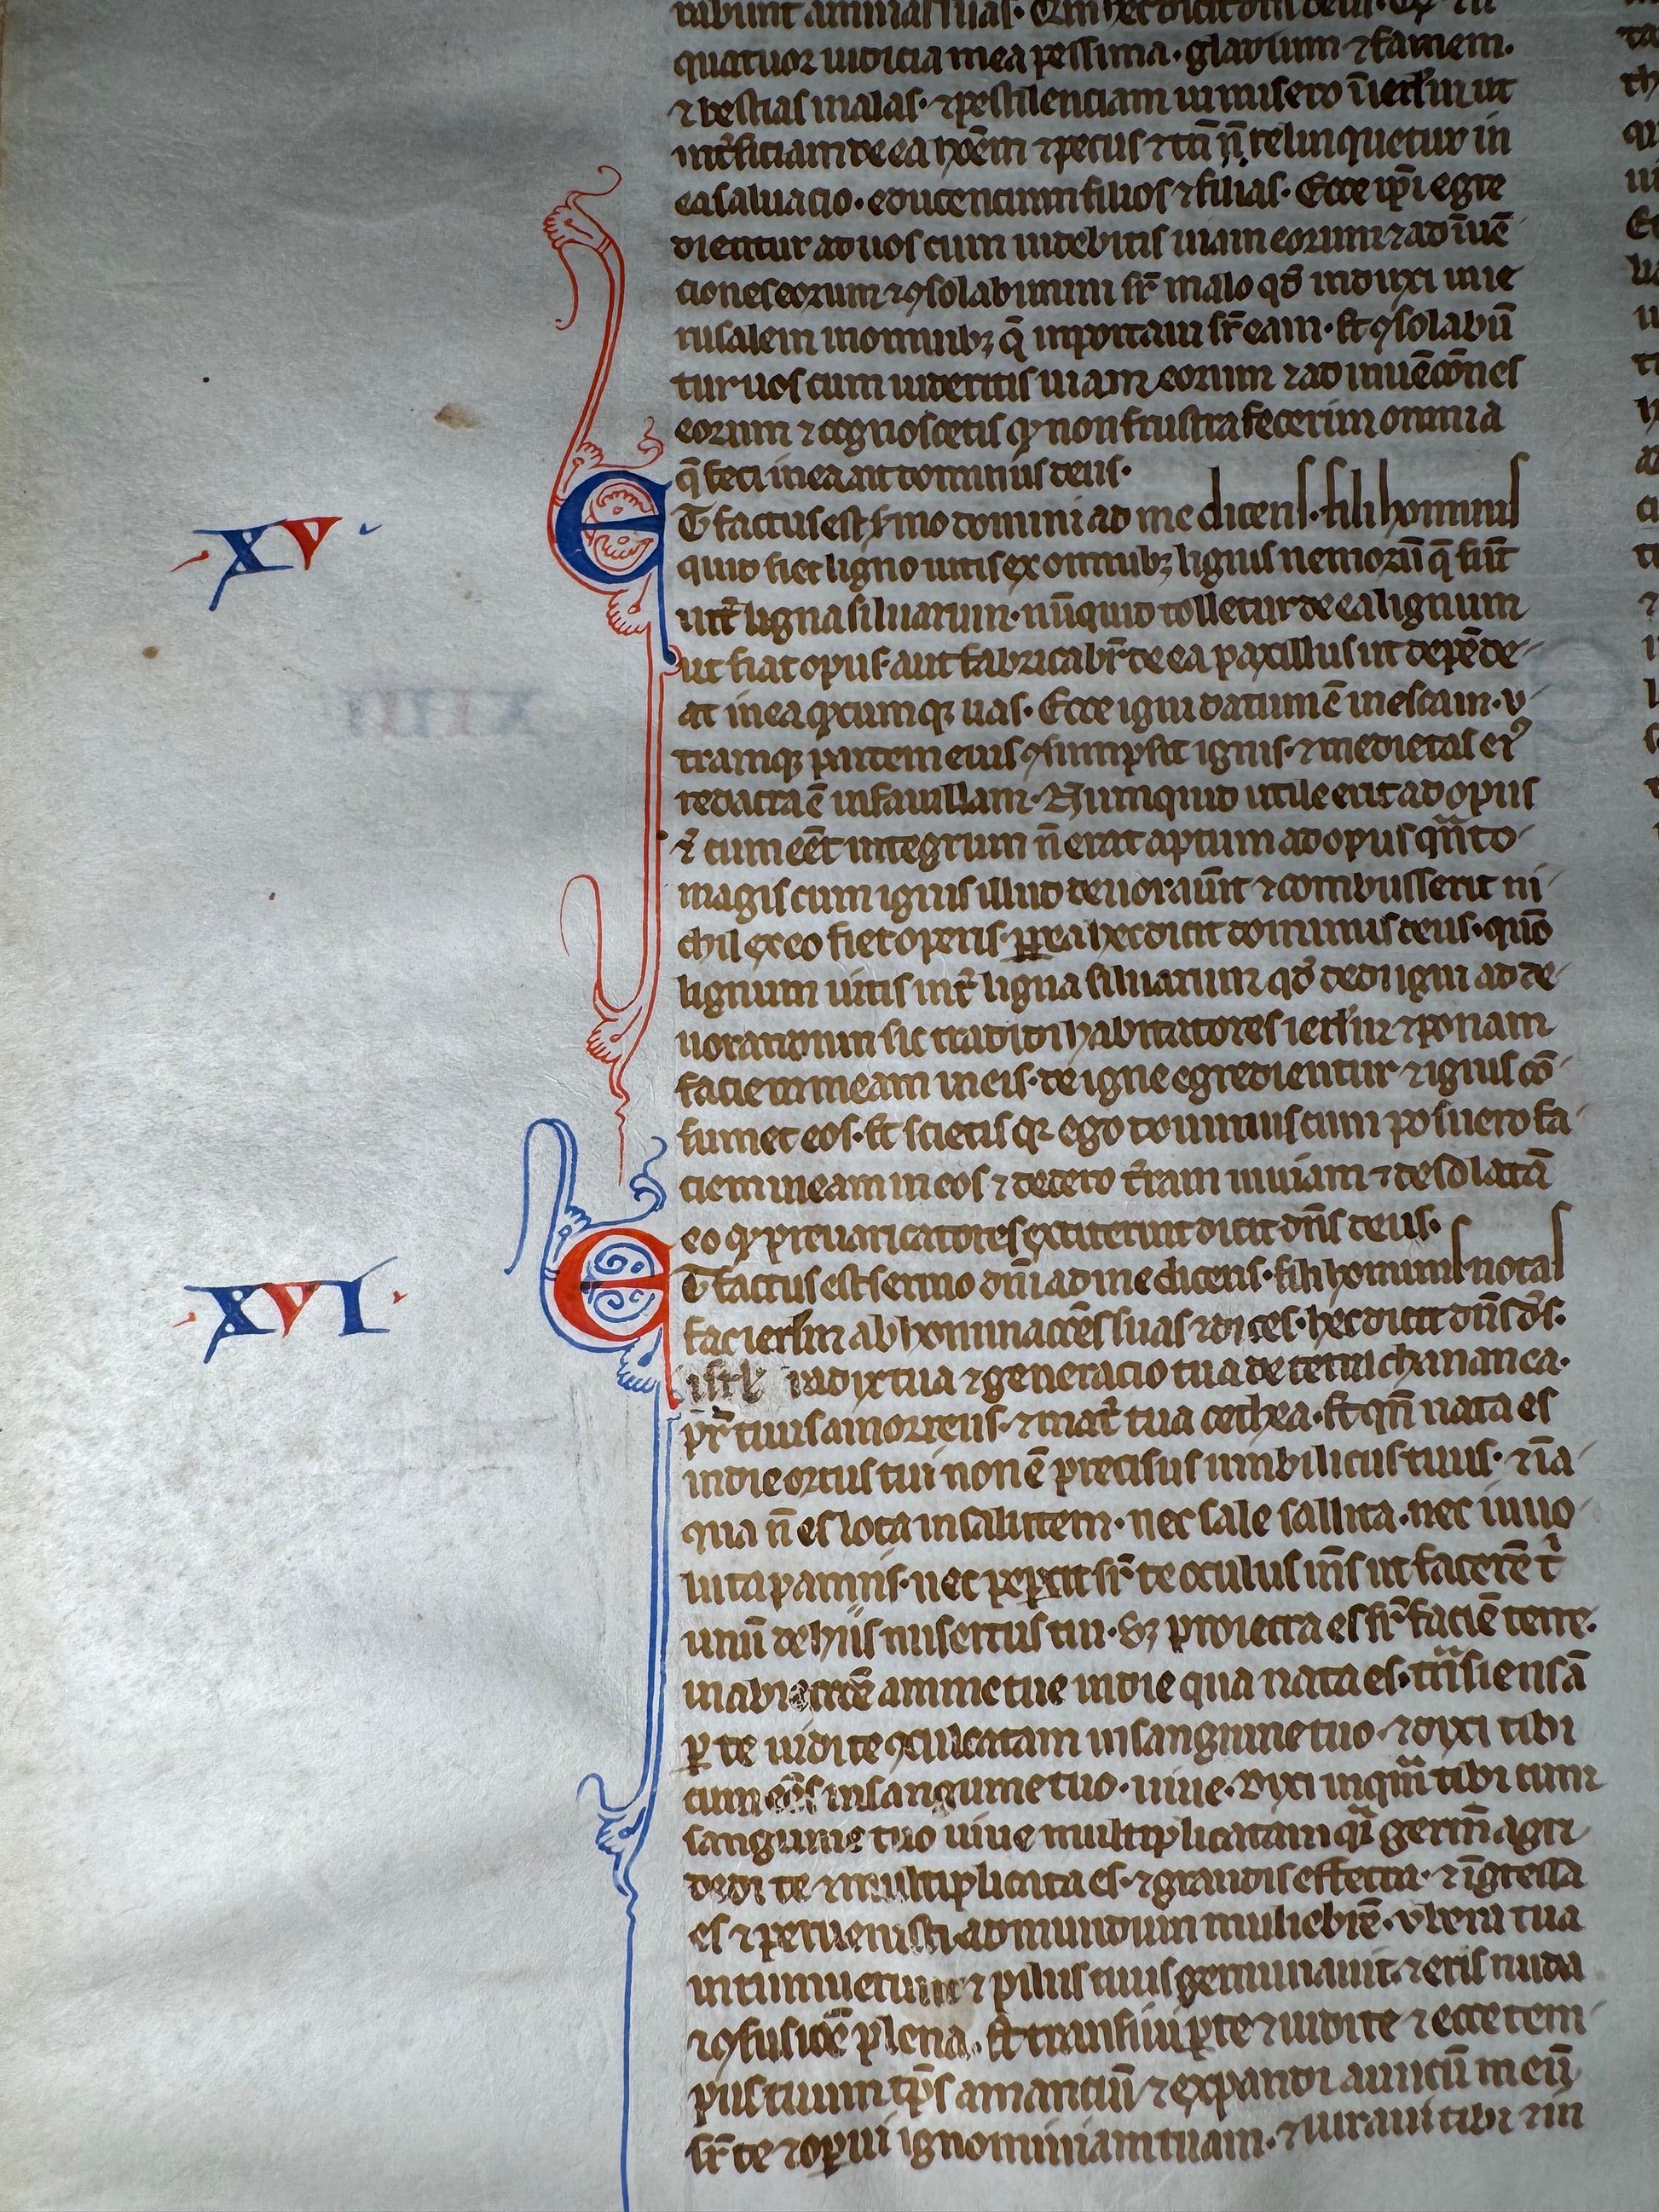 quatuor iudicia mea pessima· gladium ⁊ famem·
⁊ bestias malas· ⁊ pestilenciam inmisero ī ierl̄m ut
int̄ficiam de ea hoēm ⁊ pecus ⁊ tn̄ n̄ relinquetur in
ea saluacio· educencium filios ⁊ filias· Ecce ip̄i egre
dientur ad uos cum uidebitis uiam eorum ⁊ ad īuē
ciones eorum ⁊ ꝯsolabimini sr̄ malo qd̄ induxi in ie
rusalem in omnibꝫ q̄ inportaui sr̄ eam· Et ꝯsolabū
tur uos cum uideritis uiam eorum ⁊ ad inuēcōnes
eorum ⁊ cognoscetis qꝫ non frustra fecerim omnia
q̄ feci in ea ait dominus deus·
XV
ET factus est s̄mo domini ad me dicens· fili hominis
quid fiet ligno uitis ex omnibꝫ lignis nemorū q̄ sūt
int̄ ligna siluarum· nūquid tolletur de ea lignum
ut fiat opus· aut fabricabr̄ de ea paxillus ut depēde
at in ea qͥcumqꝫ uas· Ecce igni datum ē in escam· v
tramqꝫ partem eius ꝯsumpsit ignis· ⁊ medietas eiꝰ
redacta ē in fauillam· Numquid utile erit ad opus
⁊ cum eēt integrum n̄ erat aptum ad opus qn̄to
magis cum ignis illud deuorauīt ⁊ combusserit ni
chil ex eo fiet operis· ꝓp̄ea hec dicit dominus deus· quō
lignum uitis int̄ ligna siluarum qd̄ dedi igni ad de
uorandum sic tradidi habitatores ierl̄m ⁊ ponam
faciem meam in eis· de igne egredientur ⁊ ignis cō
sumet eos· Et scietis qꝫ ego dominus cum posuero fa
ciem meam in eos ⁊ dedero t̄ram inuiam ⁊ desolatā
eo qꝫ preuaricatores extiterint dicit dn̄s deus·
XVI
ET factus est sermo dn̄i ad me dicens· fili hominis notas
fac ierl̄m abhominacōes suas ⁊ dices· hec dicit dn̄s ds̄·
radix tua ⁊ generacio tua de terra chananea·
pr̄ tuus amorreus· ⁊ mat̄ tua cethea· Et qn̄ nata es
in die ortus tui non ē precisus umbilicus tuus· ⁊ ī a
qua n̄ es lota in salutem· nec sale sallita· nec inuo
luta pannis· nec pepercit sr̄ te oculus m̄s ut facerē t̄
unū de hiis misertus tui· Sꝫ proiecta es sr̄ faciē terre·
in abiectōe anime tue in die qua nata es· trn̄siens ā
ꝑ te uidi te ꝯculcatam in sanguine tuo· ⁊ dixi tibi
cum eēs in sanguine tuo· uiue· Dixi inqm̄ tibi cum
sanguine tuo uiue multiplicatam qͣi germē agri
dedi te ⁊ multiplicata es· ⁊ grandis effecta· ⁊ īgressa
es ⁊ peruenisti ad mundum muliebrē· vbera tua
intumuerunt ⁊ pilus tuus germinauit· ⁊ eris nuda
⁊ ꝯfusiōe plena· Et transiui ꝑ te ⁊ uidi te ⁊ ecce tem
pus tuum tp̄s amanciū ⁊ expandi amictū meū
sr̄ te ⁊ operui ignominiam tuam· ⁊ iuraui tibi ⁊ in